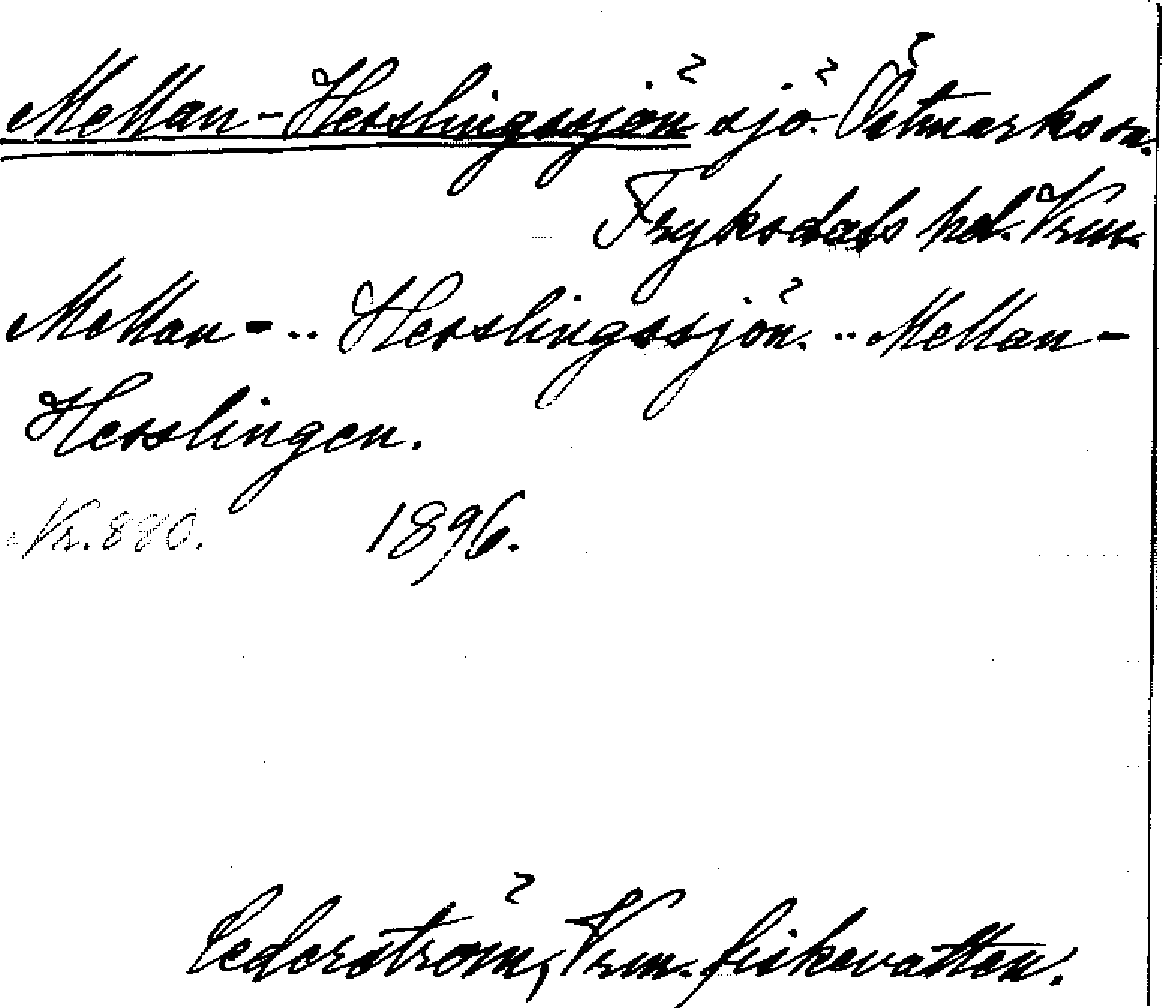 Mellan-Hersslingssjön sjö. Östmarks sn.
Fryksdals hd. Vrm.
Mellan- .. Hersslingssjön. .. Mellan-
Hersslingen.
Nr. 880. 1896.
Cederström, Vrm. fiskevatten.